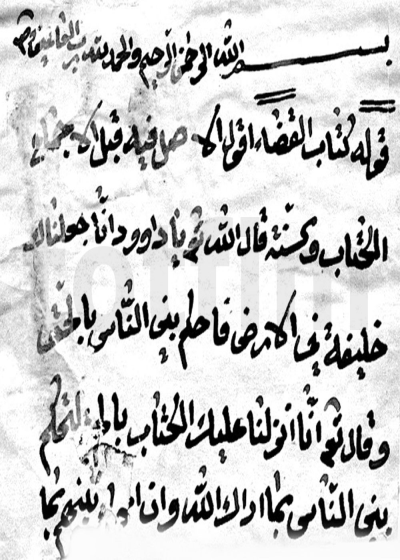 بسم الله الرحمن الرحيم والحمد لله رب العالمين
قوله كتاب القضاء اقول الاصل فيه قبل الاجماع
الكتاب والسنة قال الله تع يا داوود انا جعلناك
خليفة في الارض فاحكم بين الناس بالحق
وقال تع انا انزلنا عليك الكتاب بالحق لتحكم
بين الناس بما اراك الله وان احكم بينهم بما